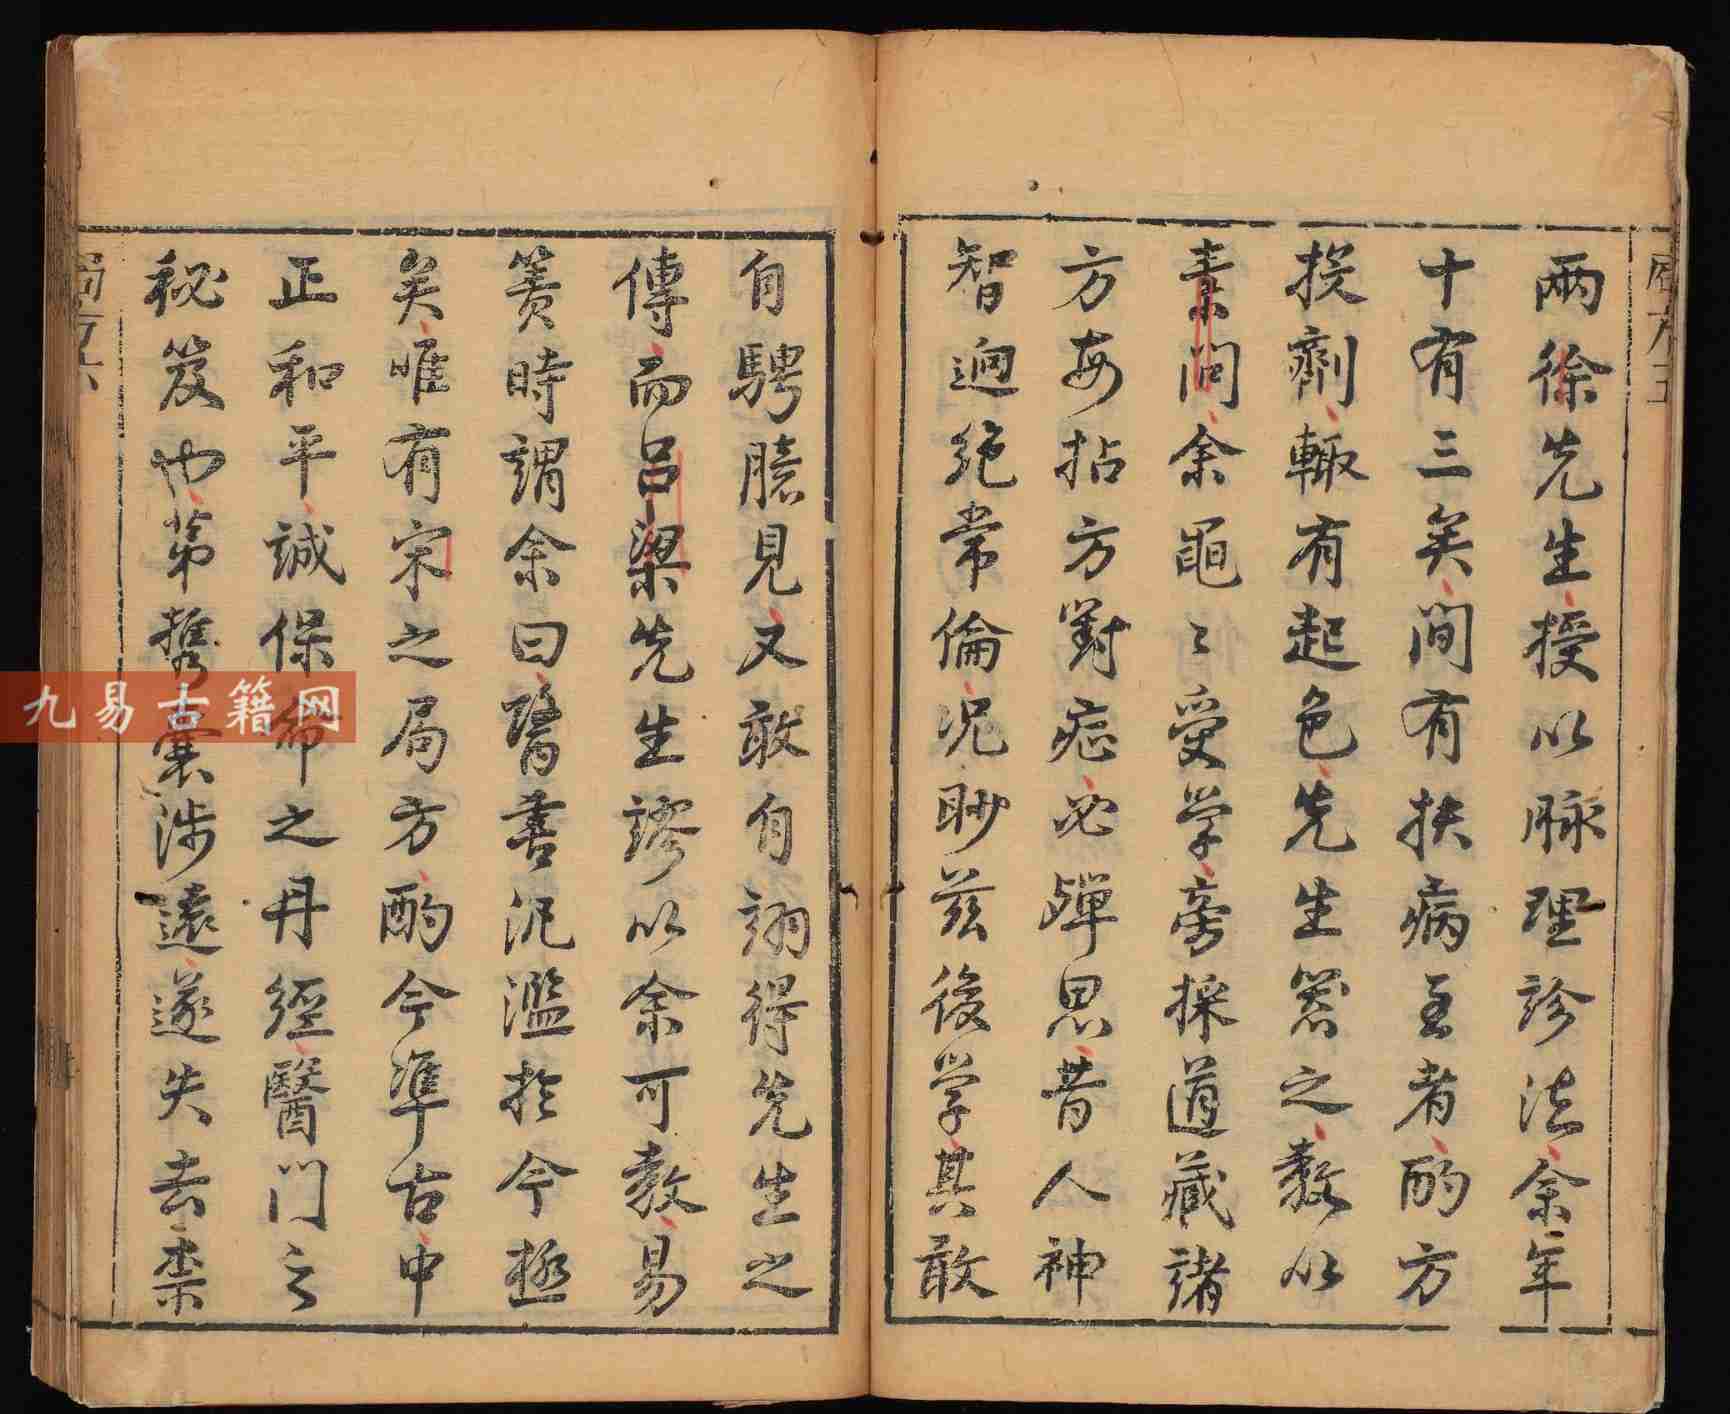 兩徐先生授以脉理診法余年
十有三矣間有扶病至者酌方
投劑輙有起色先生器之教以
素問余黽〻受学旁採道藏諸
方每拈方對症必殫思昔人神
智迥絶常倫况眇兹後学其敢
自騁臆見又敢自詡得先生之
傳而吕梁先生謬以余可教易
簀時謂余曰醫書汎濫於今極
矣唯有宋之局方酌今準古中
正和平誠保命之丹經醫門之
秘笈也苐携囊涉遠遂失去柰
九易古籍网